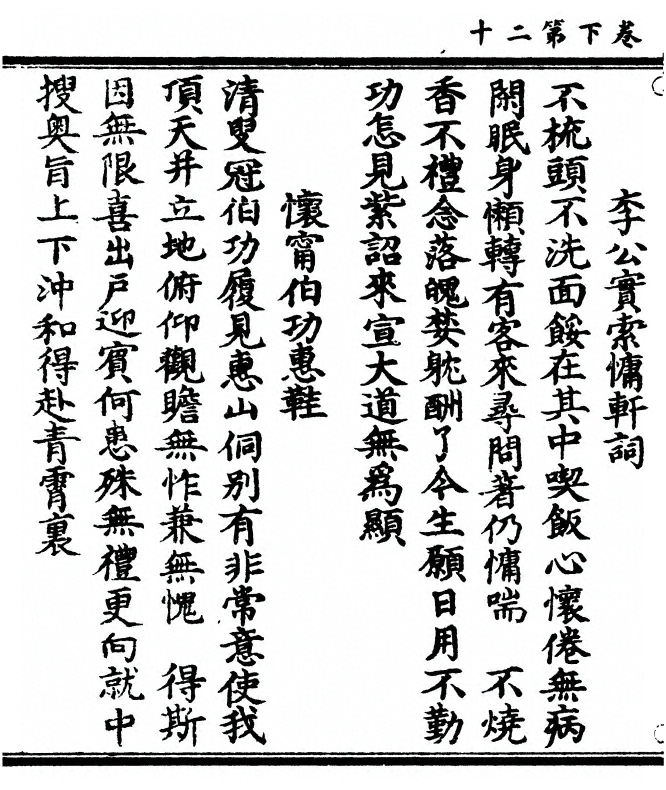 卷下第二十
李公實索慵軒詞
不梳頭不洗面餒在其中喫飯心懷倦無病
閑眠身懶轉有客來尋問著仍慵喘　不燒
香不禮念落魄婪躭酬了今生願日用不勤
功怎見紫詔來宣大道無爲顯
懷甯伯功惠鞋
清叟冠伯功履見惠山侗別有非常意使我
頂天幷立地俯仰觀瞻無怍兼無愧　得斯
因無限喜出戶迎賓何患殊無禮更向就中
搜奥旨上下沖和得赴青霄裏